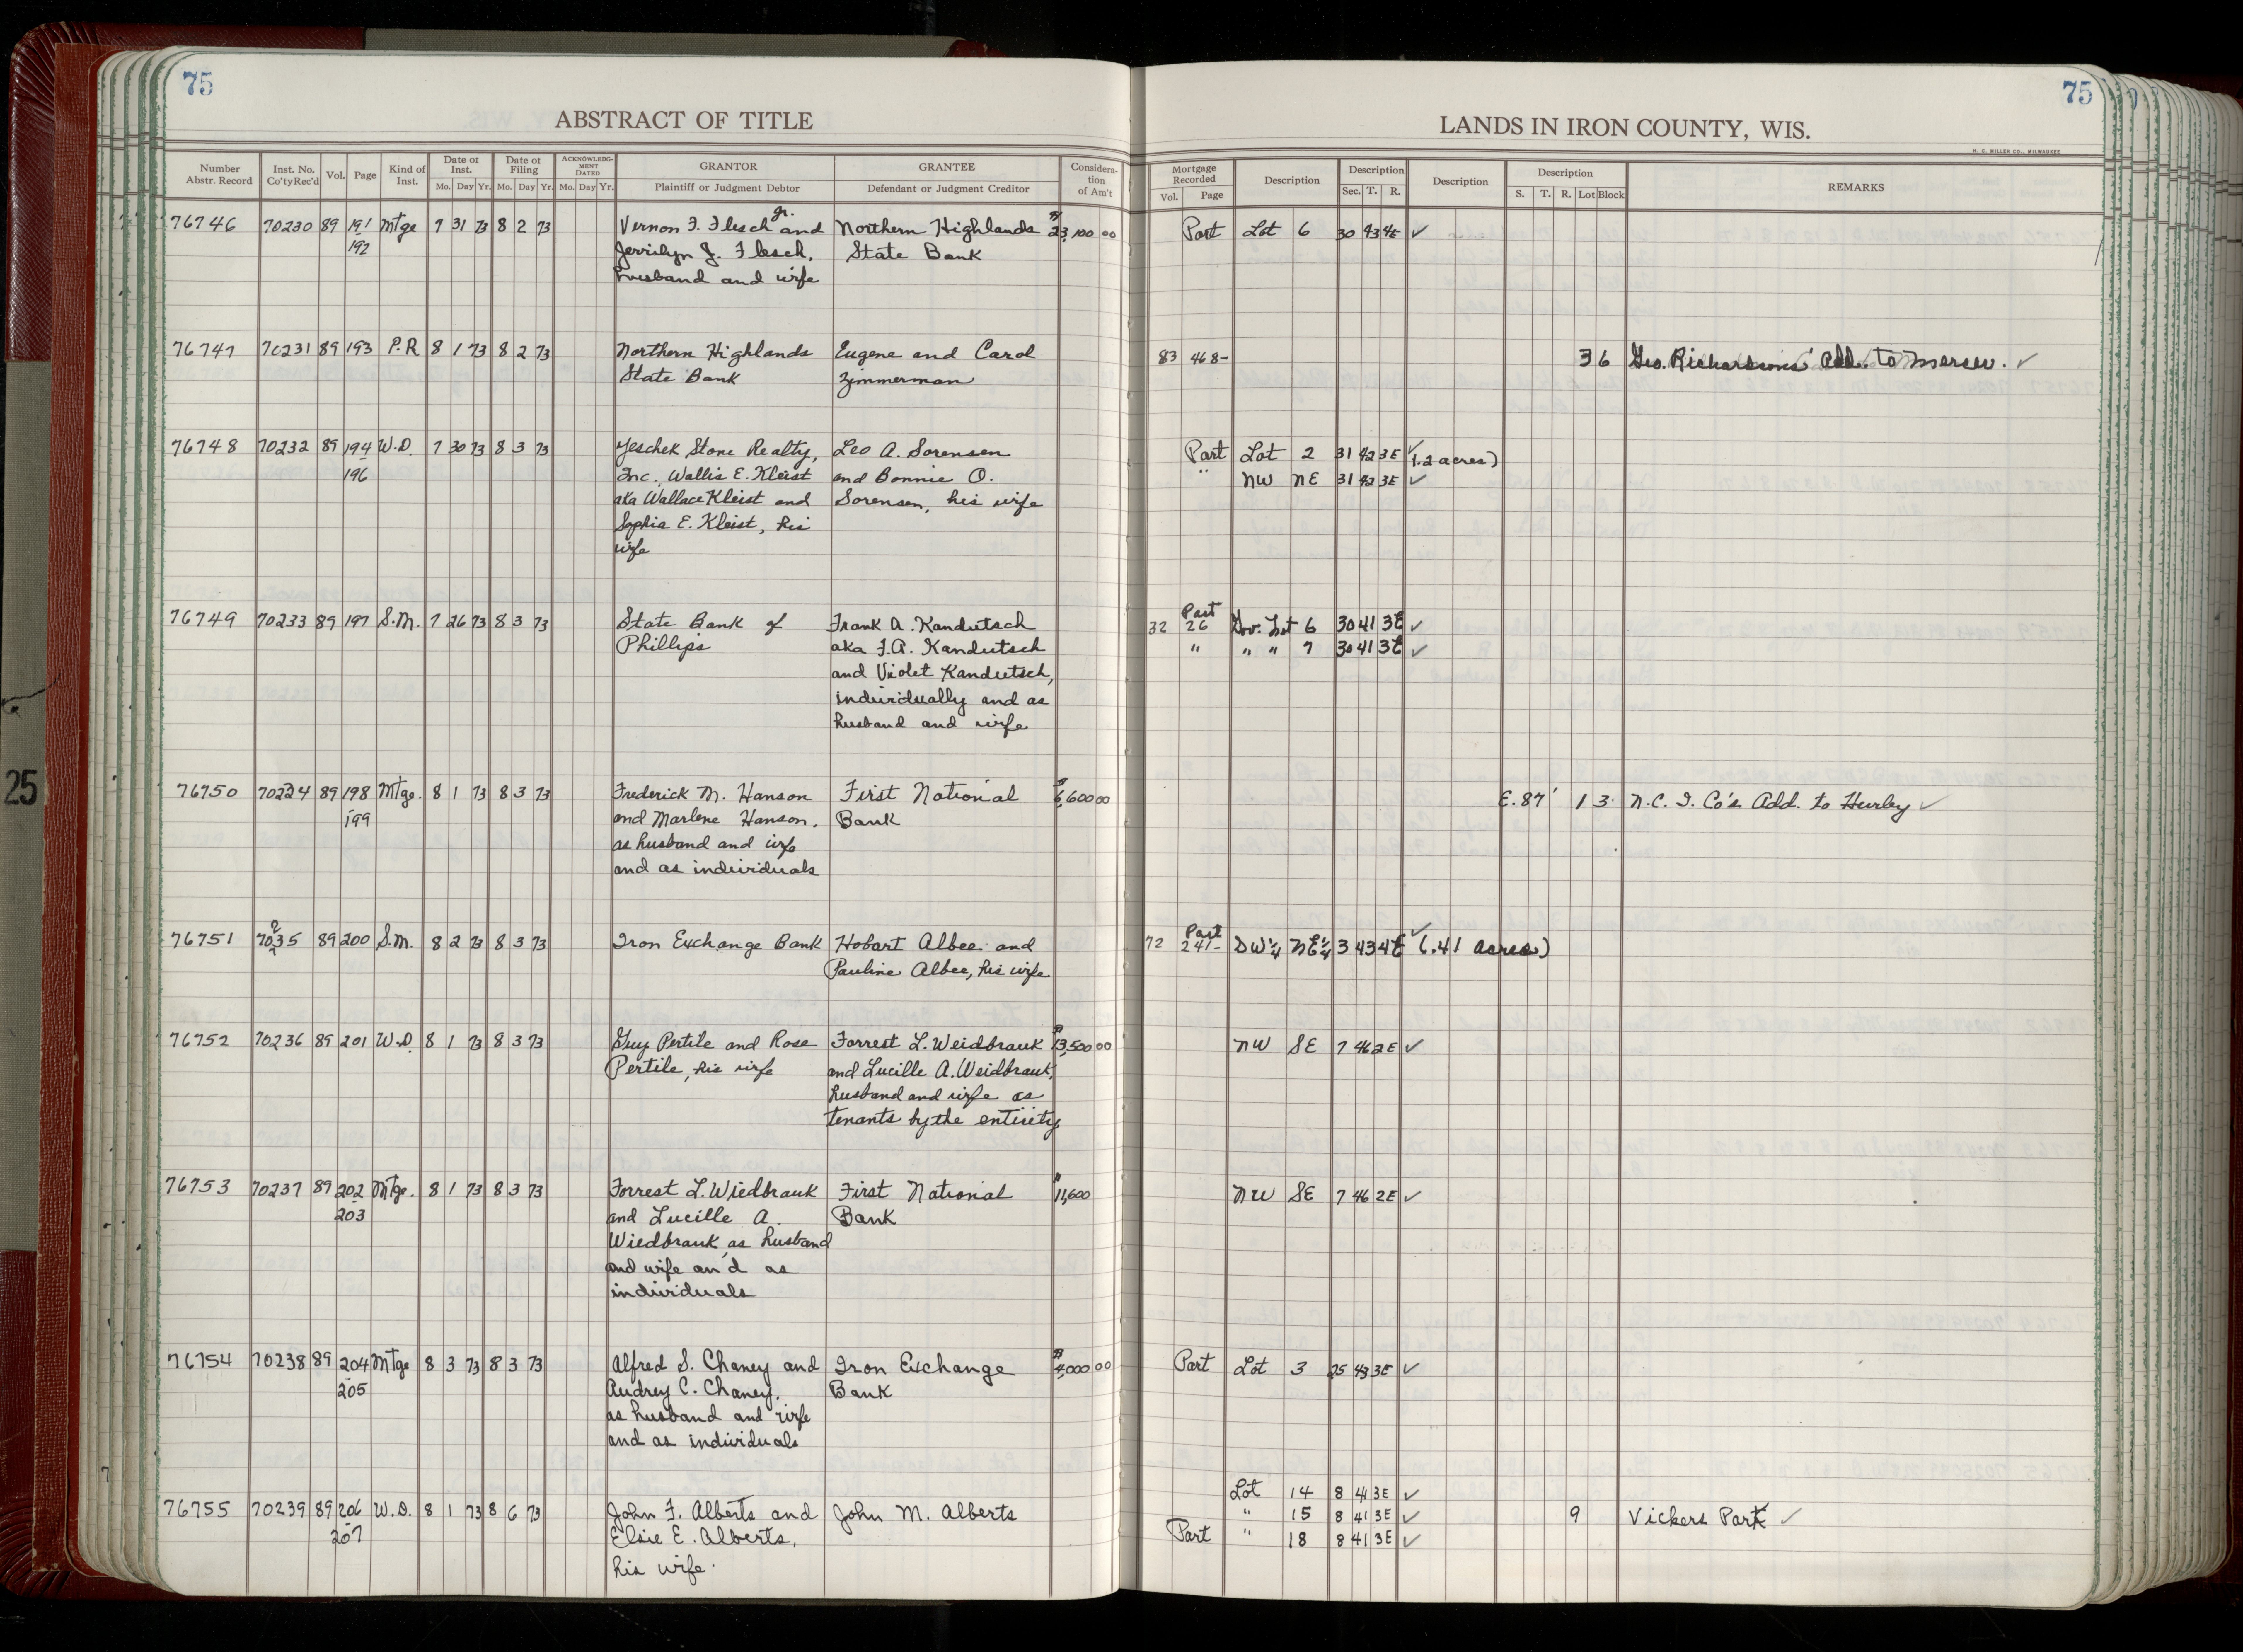 75
ABSTRACT OF TITLE
Number Abstr. Record | Inst. No. Co'ty Rec'd | Vol. | Page | Kind of Inst. | Date of Inst. Mo. Day Yr. | Date of Filing Mo. Day Yr. | ACKNOWLEDGMENT DATED Mo. Day Yr. | GRANTOR Plaintiff or Judgment Debtor | GRANTEE Defendant or Judgment Creditor | Consideration of Am't
76746 70230 89 191 Mtge 7 31 73 8 2 73 Vernon F. Flesch Jr. and Northern Highlands $23,100 00
192 Jerrilyn J. Flesch, State Bank
husband and wife
76747 70231 89 193 P.R 8 1 73 8 2 73 Northern Highlands Eugene and Carol
State Bank Zimmerman
76748 70232 89 194 W.D. 7 30 73 8 3 73 Jeschek Stone Realty, Leo A. Sorensen
196 Inc., Wallis E. Kleist and Bonnie O.
aka Wallace Kleist and Sorensen, his wife
Sophia E. Kleist, his
wife
76749 70233 89 197 S.M. 7 26 73 8 3 73 State Bank of Frank A. Kandutsch
Phillips aka F.A. Kandutsch
and Violet Kandutsch,
individually and as
husband and wife
76750 70234 89 198 Mtge. 8 1 73 8 3 73 Frederick M. Hanson First National $6,600 00
199 and Marlene Hanson, Bank
as husband and wife
and as individuals
76751 70235 89 200 S.M. 8 2 73 8 3 73 Iron Exchange Bank Hobart Albee and
Pauline Albee, his wife
76752 70236 89 201 W.D. 8 1 73 8 3 73 Guy Pertile and Rose Forrest L. Weidbrauk $13,500 00
Pertile, his wife and Lucille A. Weidbrauk,
husband and wife as
tenants by the entirety
76753 70237 89 202 Mtge. 8 1 73 8 3 73 Forrest L. Wiedbrauk First National $11,600
203 and Lucille A. Bank
Wiedbrauk, as husband
and wife and as
individuals
76754 70238 89 204 Mtge 8 3 73 8 3 73 Alfred S. Chaney and Iron Exchange $4,000 00
205 Audrey C. Chaney, Bank
as husband and wife
and as individuals
76755 70239 89 206 W.D. 8 1 73 8 6 73 John F. Alberts and John M. Alberts
207 Elsie E. Alberts,
his wife.
25
75
LANDS IN IRON COUNTY, WIS.
H. C. MILLER CO., MILWAUKEE
Mortgage Recorded Vol. Page | Description | Description Sec. T. R. | Description | Description S. T. R. Lot Block | REMARKS
Part Lot 6 30 43 4E ✓
83 468- 3 6 Geo. Richardsons' Add. to Mercer. ✓
Part Lot 2 31 42 3E ✓ (1.2 acres)
" NW NE 31 42 3E ✓
Part
32 26 Gov. Lot 6 30 41 3E ✓
" " " 7 30 41 3E ✓
E. 87' 1 3 N.C. I. Co's. Add. to Hurley ✓
Part
72 241- SW¼ NE¼ 3 43 4E ✓ (.41 acres)
NW SE 7 46 2E ✓
NW SE 7 46 2E ✓
Part Lot 3 25 43 3E ✓
Lot 14 8 41 3E ✓
" 15 8 41 3E ✓ 9 Vickers Park ✓
Part " 18 8 41 3E ✓